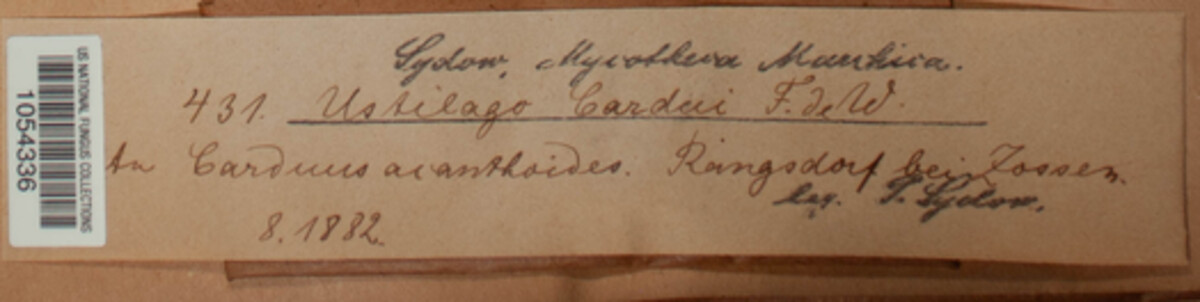 Sydow, Mycotheca Marchica.
431. Ustilago Cardui F. de W.
An Carduus acanthoides. Rangsdorf bei Zossen.
leg. P. Sydow.
8. 1882.
US NATIONAL FUNGUS COLLECTIONS
1054336